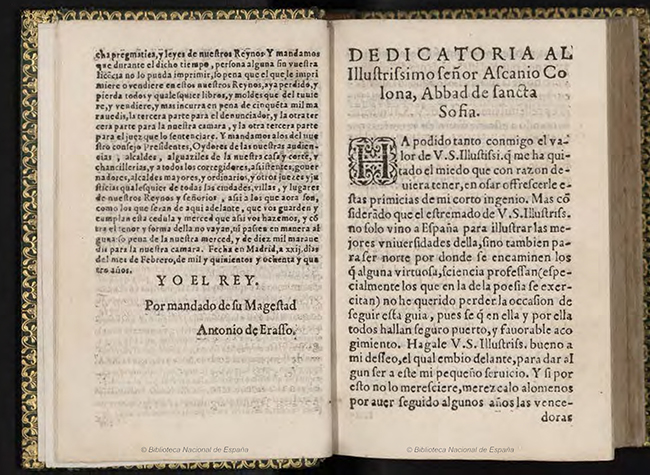 cha pregmatica, y leyes de nuestros Reynos. Y mandamos
que durante el dicho tiempo, persona alguna sin vuestra
licẽcia no lo pueda imprimir, so pena que el que le impri
miere o vendiere en estos nuestros Reynos, aya perdido, y
pierda todos y qualesquier libros, y moldes que del tuuie
re, y vendiere, y mas incurra en pena de cinquẽta mil ma
rauedis, la tercera parte para el denunciador, y la otra ter
cera parte para la nuestra camara, y la otra tercera parte
para el juez que lo sentenciare. Y mandamos a los del nue
stro consejo Presidentes, Oydores de las nuestras audien-
cias, alcaldes, alguaziles de la nuestra casa y corte, y
chancillerias, y a todos los corregidores, asistentes, gouer
nadores, alcaldes mayores, y ordinarios, y otros juezes y ju
sticias qualesquier de todas las ciudades, villas, y lugares
de nuestros Reynos y señorios, asi a los que aora son,
como los que seran de aqui adelante, que vos guarden y
cumplan esta cedula y merced que asi vos hazemos, y cõ
tra el tenor y forma della no vayan, ni pasen en manera al
guna so pena de la nuestra merced, y de diez mil maraue
dis para la nuestra camara. Fecha en Madrid, a xxij. dias
del mes de Febrero, de mil y quinientos y ochenta y qua
tro años.
YO EL REY.
Por mandado de su Magestad
Antonio de Erasso.
© Biblioteca Nacional de España
DEDICATORIA AL
Illustrissimo señor Ascanio Co
lona, Abbad de sancta
Sofia.
HA podido tanto conmigo el va-
lor de V.S. Illustrissi. q̃ me ha qui-
tado el miedo que con razon de-
uiera tener, en osar offrescerle e-
stas primicias de mi corto ingenio. Mas cõ
siderado que el estremado de V.S. Illustriss.
no solo vino a España para illustrar las me-
jores vniuersidades della, sino tambien pa-
ra ser norte por donde se encaminen los
q̃ alguna virtuosa, sciencia professan (espe-
cialmente los que en la de la poesia se exer-
citan) no he querido perder la occasion de
seguir esta guia, pues se q̃ en ella y por ella
todos hallan seguro puerto, y fauorable aco
gimiento. Hagale V.S. Illustriss. bueno a
mi desseo, el qual embio delante, para dar al
gun ser a este mi pequeño seruicio. Y si por
esto no lo meresciere, merezcalo alomenos
por auer seguido algunos años las vence-
doras
© Biblioteca Nacional de España